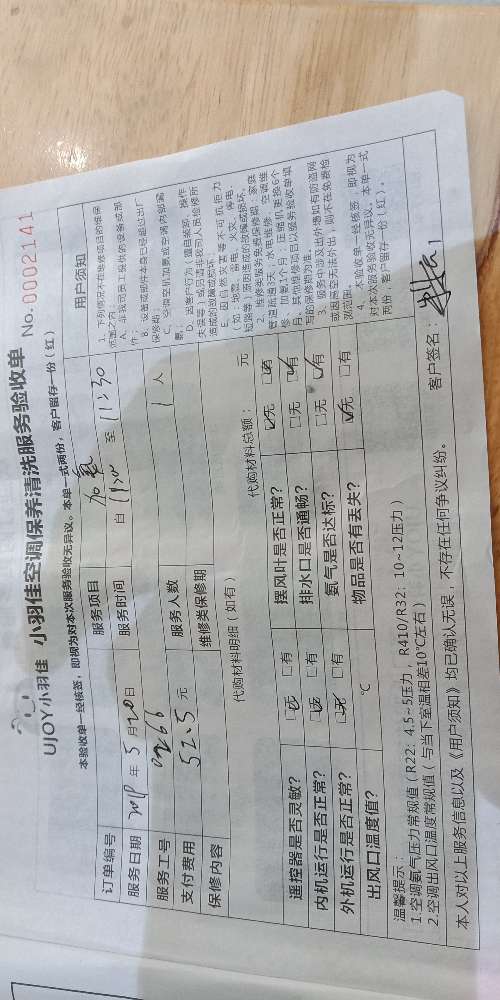 UJOY小羽佳 小羽佳空调保养清洗服务验收单 No.0002141
本验收单一经核签，即视为对本次服务验收无异议。本单一式两份，客户留存一份（红）
订单编号 服务项目 加氨
服务日期 2019年5月20日 服务时间 自 至 11:30
服务工号 0266 服务人数 1人
支付费用 52.5元 维修类保修期
保修内容
代购材料明细（如有） 代购材料总额： 元
遥控器是否灵敏？ □无 □有 摆风叶是否正常？ □无 □有
内机运行是否正常？ □无 □有 排水口是否通畅？ □无 □有
外机运行是否正常？ □无 □有 氨气是否达标？ □无 □有
出风口温度值？ ℃ 物品是否有丢失？ □无 □有
用户须知
1、下列情况不在维修项目的维保范围之内
A、非我司员工提供的设备或部件；
B、设备或部件本身已经超过出厂保修期；
E、因自然灾害等不可抗拒力（如：地震、雷电、火灾、停电、短路等）原因造成的故障或损坏。
4、本验收单一经核签，即视为对本次服务验收无异议。本单一式两份，客户留存一份（红）。
温馨提示：
1.空调氨气压力常规值（R22：4.5~5压力，R410/R32：10~12压力）
2.空调出风口温度常规值（与当下室温相差10℃左右）
本人对以上服务信息以及《用户须知》均已确认无误，不存在任何争议纠纷。 客户签名：